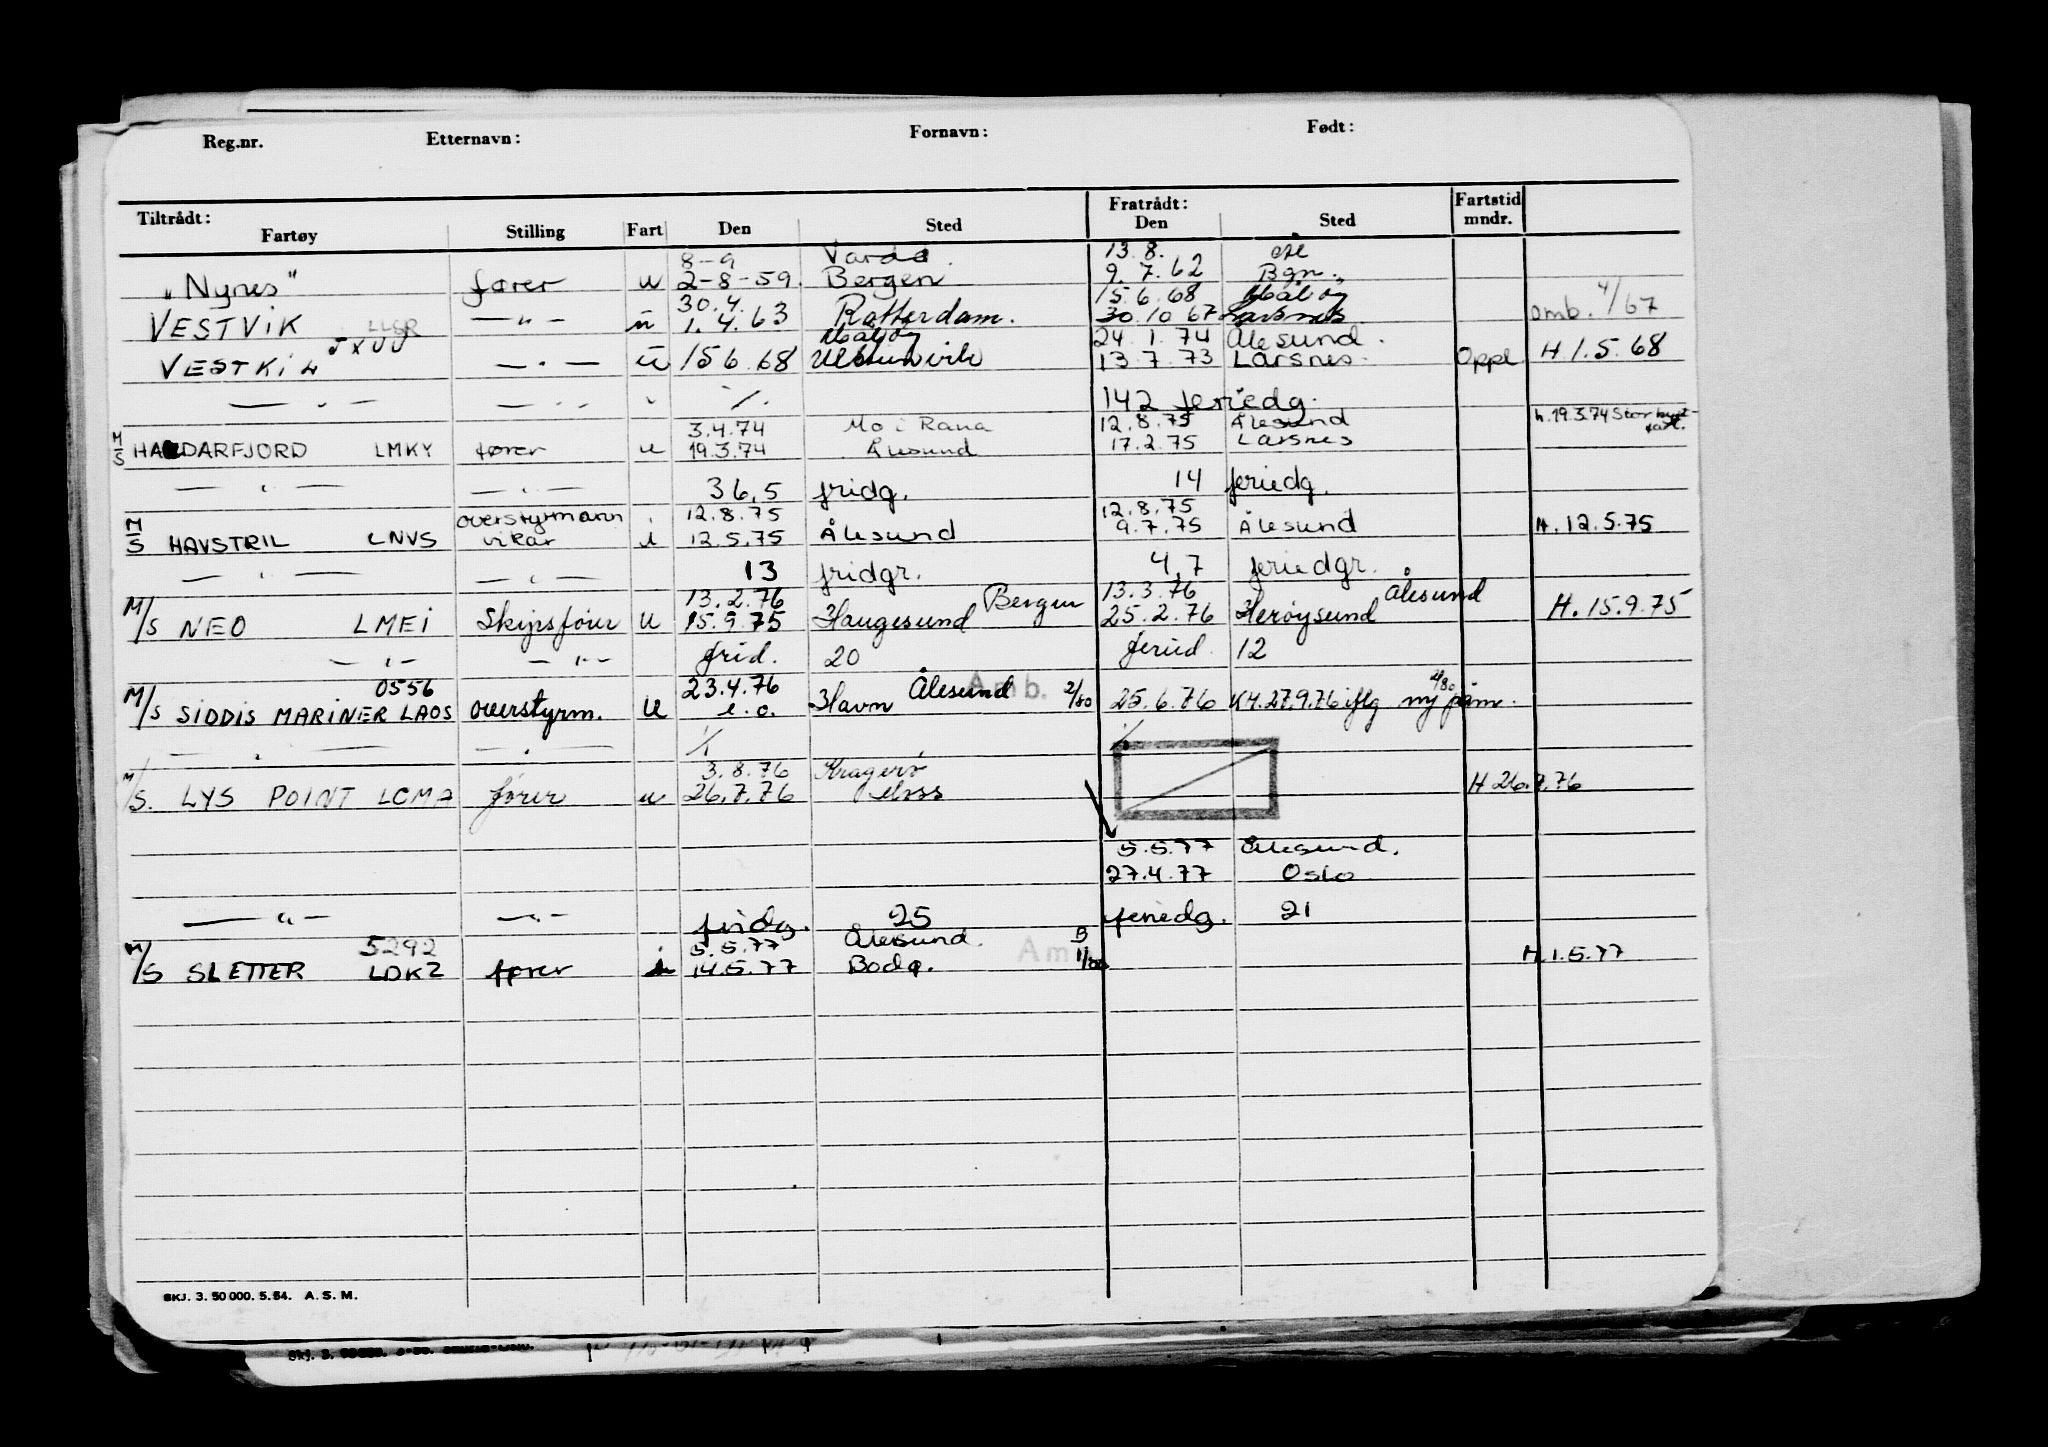 Reg.nr. Etternavn: Fornavn: Født:
Tiltrådt: Fratrådt: Fartstid
Fartøy Stilling Fart Den Sted Den Sted mndr.
8-9 Vardø. 13.8.
"Nynes" fører u 2-8-59. Bergen 9.7.62 Bgn.
30.4. 15.6.68 Måløy
VESTVIK LLGR —"— u 1.4.63 Rotterdam. 30.10 67 Larsnes omb. 4/67
JXUU Måløy 24.1.74 Ålesund.
VESTKIL —"— u 15 6.68 Ulsteinvik 13.7.73 Larsnes. Oppl. H.1.5.68
—"— —"— " ./. 142 feriedg.
3.4.74 Mo i Rana 12.8.75 Ålesund h.19.3.74 Stor kyst-
fart.
M/S HADARFJORD LMKY fører u 19.3.74 Ålesund 17.2.75 Larsnes
—"— —"— 36,5 fridg. 14 feriedg.
overstyrmann 12.8.75 12.8.75
M/S HAVSTRIL LNVS vikar u 12.5.75 Ålesund 9.7.75 Ålesund H.12.5.75
—"— —"— 13 fridgr. 4,7 feriedgr.
13.2.76 Bergen 13.3.76 Ålesund
M/S NEO LMEI Skipsfører u 15.9.75 Haugesund 25.2.76 Herøysund H.15.9.75
—"— —"— frid. 20 feried. 12
0556 23.4.76 Ålesund Amb. 2/80 2/80
M/S SIDDIS MARINER LAOS overstyrm. u e.o. Havn 25.6.76 KH.27.9.76 iflg ny påm.
—"— —"— ./. ./.
3.8.76 Kragerø
M/S. LYS POINT LCMA fører u 26.7.76 Moss H 26.7.76
5.5.77 Ålesund.
27.4.77 Oslo
—"— —"— fridg. 25 feriedg. 21
5292 5.5.77 Ålesund. B
M/S SLETTER LDKZ fører 14.5.77 Bodø. Am 1/80 H.1.5.77
SKJ. 3. 50 000. 5.64. A. S. M.